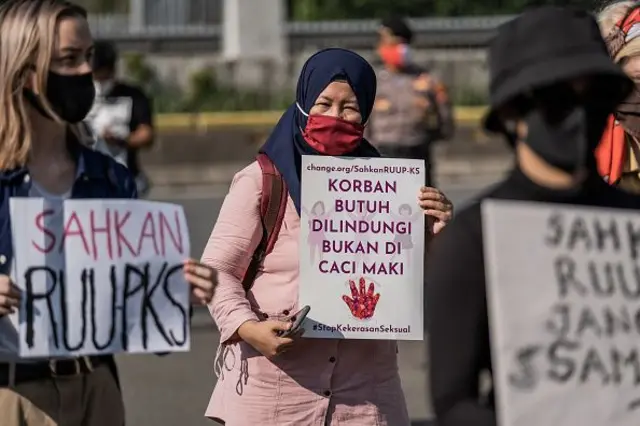 SAHKAN
RUUPKS
change.org/SahkanRUUP-KS
KORBAN
BUTUH
DILINDUNGI
BUKAN DI
CACI MAKI
#StopKekerasanSeksual
SAHK
RUU
JAN